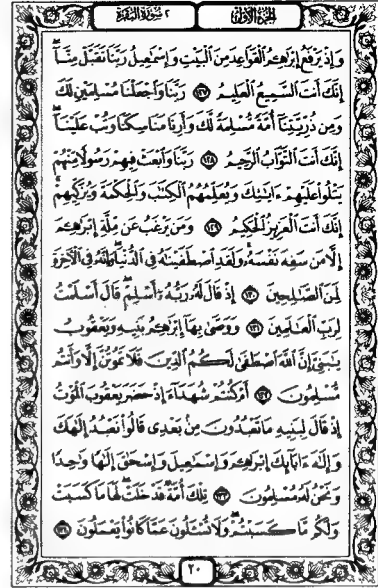 الجزء الأول
٢ سورة البقرة
وَإِذْ يَرْفَعُ إِبْرَٰهِـۧمُ ٱلْقَوَاعِدَ مِنَ ٱلْبَيْتِ وَإِسْمَـٰعِيلُ رَبَّنَا تَقَبَّلْ مِنَّآ
إِنَّكَ أَنتَ ٱلسَّمِيعُ ٱلْعَلِيمُ ١٢٧ رَبَّنَا وَٱجْعَلْنَا مُسْلِمَيْنِ لَكَ
وَمِن ذُرِّيَّتِنَآ أُمَّةً مُّسْلِمَةً لَّكَ وَأَرِنَا مَنَاسِكَنَا وَتُبْ عَلَيْنَآ
إِنَّكَ أَنتَ ٱلتَّوَّابُ ٱلرَّحِيمُ ١٢٨ رَبَّنَا وَٱبْعَثْ فِيهِمْ رَسُولًا مِّنْهُمْ
يَتْلُوا۟ عَلَيْهِمْ ءَايَـٰتِكَ وَيُعَلِّمُهُمُ ٱلْكِتَـٰبَ وَٱلْحِكْمَةَ وَيُزَكِّيهِمْ
إِنَّكَ أَنتَ ٱلْعَزِيزُ ٱلْحَكِيمُ ١٢٩ وَمَن يَرْغَبُ عَن مِّلَّةِ إِبْرَٰهِـۧمَ
إِلَّا مَن سَفِهَ نَفْسَهُۥ وَلَقَدِ ٱصْطَفَيْنَـٰهُ فِى ٱلدُّنْيَا وَإِنَّهُۥ فِى ٱلْـَٔاخِرَةِ
لَمِنَ ٱلصَّـٰلِحِينَ ١٣٠ إِذْ قَالَ لَهُۥ رَبُّهُۥٓ أَسْلِمْ قَالَ أَسْلَمْتُ
لِرَبِّ ٱلْعَـٰلَمِينَ ١٣١ وَوَصَّىٰ بِهَآ إِبْرَٰهِـۧمُ بَنِيهِ وَيَعْقُوبُ
يَـٰبَنِىَّ إِنَّ ٱللَّهَ ٱصْطَفَىٰ لَكُمُ ٱلدِّينَ فَلَا تَمُوتُنَّ إِلَّا وَأَنتُم
مُّسْلِمُونَ ١٣٢ أَمْ كُنتُمْ شُهَدَآءَ إِذْ حَضَرَ يَعْقُوبَ ٱلْمَوْتُ
إِذْ قَالَ لِبَنِيهِ مَا تَعْبُدُونَ مِنۢ بَعْدِى قَالُوا۟ نَعْبُدُ إِلَـٰهَكَ
وَإِلَـٰهَ ءَابَآئِكَ إِبْرَٰهِـۧمَ وَإِسْمَـٰعِيلَ وَإِسْحَـٰقَ إِلَـٰهًا وَٰحِدًا
وَنَحْنُ لَهُۥ مُسْلِمُونَ ١٣٣ تِلْكَ أُمَّةٌ قَدْ خَلَتْ لَهَا مَا كَسَبَتْ
وَلَكُم مَّا كَسَبْتُمْ وَلَا تُسْـَٔلُونَ عَمَّا كَانُوا۟ يَعْمَلُونَ ١٣٤
٢٠